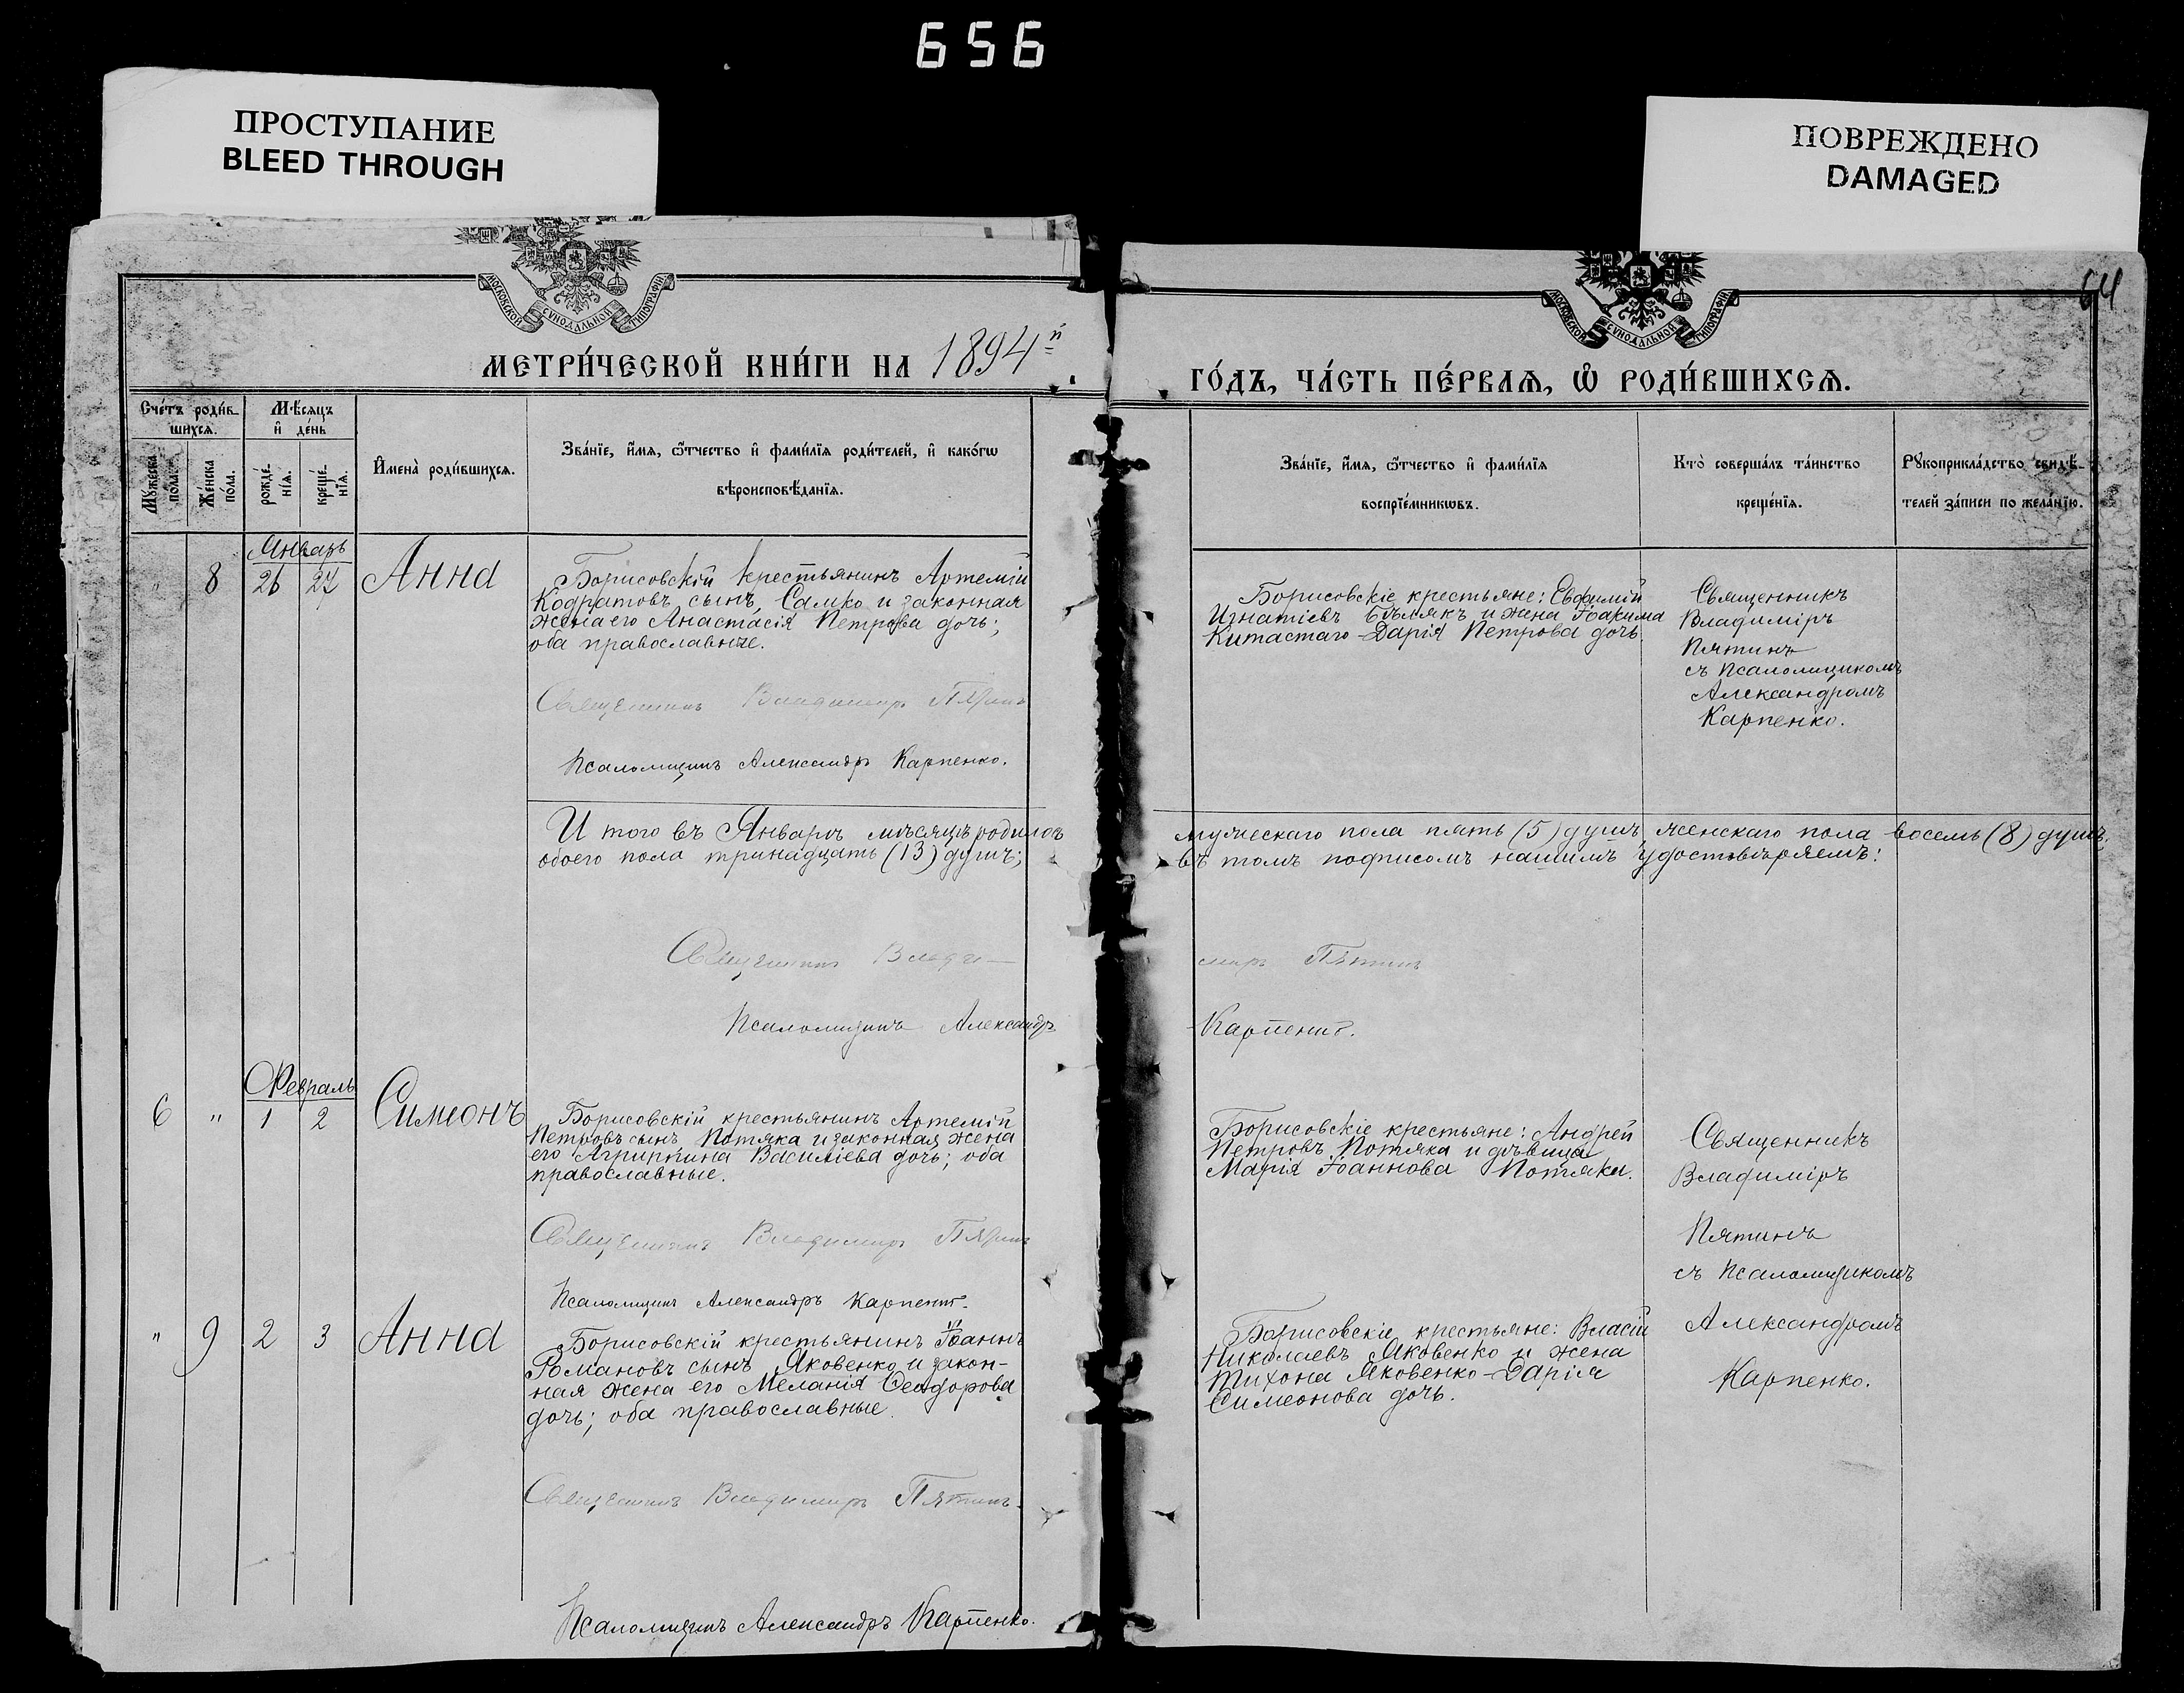 656
ПРОСТУПАНИЕ
BLEED THROUGH
ПОВРЕЖДЕНО
DAMAGED
64
МОСКОВСКОЙ СѴНОДАЛЬНОЙ ТИПОГРАФІИ
МОСКОВСКОЙ СѴНОДАЛЬНОЙ ТИПОГРАФІИ
МЕТРИ́ЧЕСКОЙ КНИ́ГИ НА 1894й
ГО́ДЪ, ЧА́СТЬ ПЕ́РВАѦ, Ѡ҆ РОДИ́ВШИХСѦ.
Сче́тъ роди́в-
шихсѧ.
Мꙋ́жеска по́ла.
Же́нска по́ла.
Мѣ́сѧцъ
и҆ де́нь
рожде́-нїѧ.
креще́-нїѧ.
И҆мена̀ роди́вшихсѧ.
Зва́нїе, и҆́мѧ, ѻ҆́тчество и҆ фами́лїѧ роди́телей, и҆ како́гѡ
вѣроисповѣ́данїѧ.
Зва́нїе, и҆́мѧ, ѻ҆́тчество и҆ фами́лїѧ
воспрїе́мникѡвъ.
Кто̀ соверша́лъ та́инство
креще́нїѧ.
Рꙋкоприкла́дство свидѣ́-
телей за́писи по жела́нїю.
Январь
" 8 26 27 Анна
Борисовскій крестьянинъ Артемій
Кодратовъ сынъ, Самко и законная
жена его Анастасія Петрова дочь;
оба православные.
Священникъ Владимиръ Пятинъ
Псаломщикъ Александръ Карпенко.
Борисовскіе крестьяне: Евфимій
Игнатіевъ Бѣлякъ и жена Іоакима
Китастаго Дарія Петрова дочь
Священникъ
Владиміръ
Пятинъ
съ псаломщикомъ
Александромъ
Карпенко.
И того въ Январѣ мѣсяцѣ родилось мужескаго пола пять (5) душъ, женскаго пола восемь (8) душъ.
обоего пола тринадцать (13) душъ; въ томъ подписомъ нашимъ удостовѣряемъ:
Священникъ Владимиръ Пятинъ
Псаломщикъ Александръ Карпенко.
Февраль
6 " 1 2 Симеонъ
Борисовскій крестьянинъ Артемій
Петровъ сынъ Потяка и законная жена
его Агриппина Василіева дочь; оба
православные.
Священникъ Владимиръ Пятинъ
Псаломщикъ Александръ Карпенко.
Борисовскіе крестьяне: Андрей
Петровъ Потяка и дѣвица
Марія Іоаннова Потяка.
Священникъ
Владиміръ
Пятинъ
съ псаломщикомъ
Александромъ
Карпенко.
" 9 2 3 Анна
Борисовскій крестьянинъ Іоаннъ
Романовъ сынъ Яковенко и закон-
ная жена его Меланія Ѳеодорова
дочь; оба православные.
Священникъ Владимиръ Пятинъ.
Псаломщикъ Александръ Карпенко.
Борисовскіе крестьяне: Власій
Николаевъ Яковенко и жена
Тихона Яковенко-Дарія
Симеонова дочь.